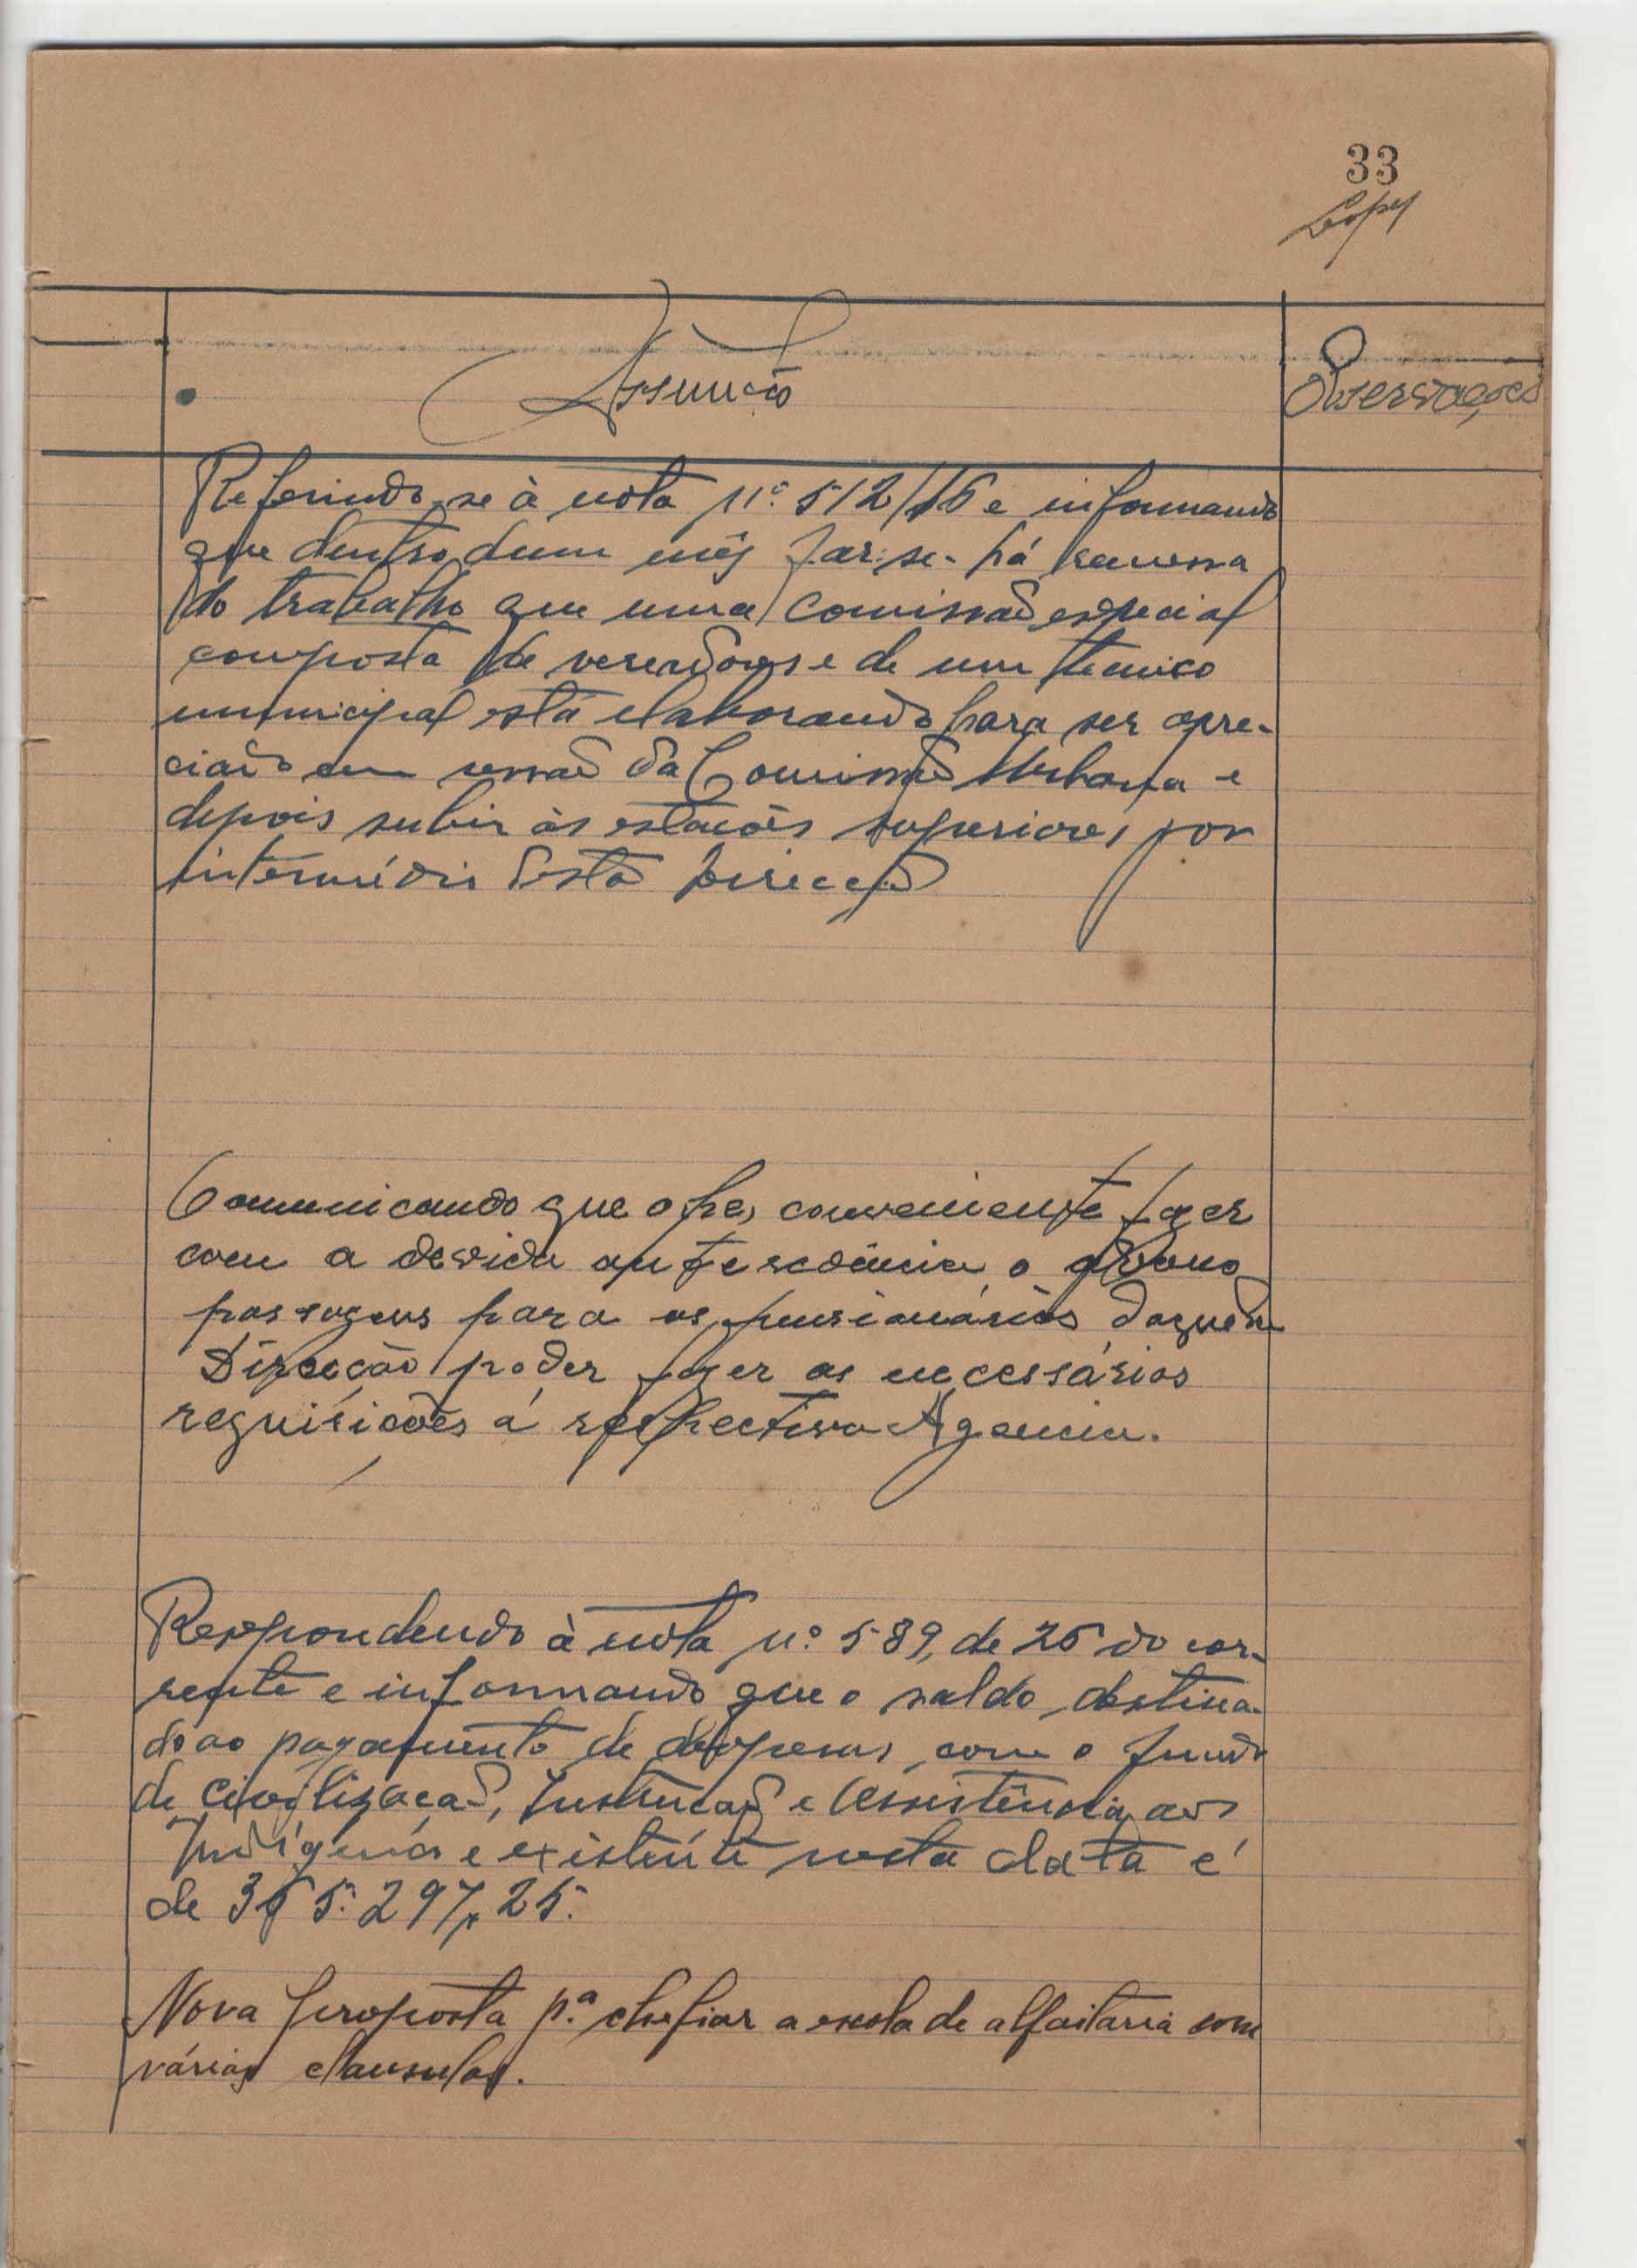 33
Assunto
Observações
Referindo-se à nota nº 512/16 e informando
que dentro dum mês far-se-há remessa
do trabalho que uma comissão especial
composta de vereadores e de um técnico
municipal está elaborando para ser apre-
ciado em sessão da Comissão Urbana e
depois subir às estações superiores por
intermédio desta Direcção
Comunicando que a fez conveniente fazer
com a devida antescedência o abono
passagens para os pensionários daquela
Direcção poder fazer as necessárias
requisições á respectiva Agencia.
Respondendo à nota nº 589, de 25 do cor-
rente e informando que o saldo destina-
do ao pagamento de despesas com o fundo
de civilização, Instrução e Assistência aos
Indígenas e existente nesta data é
de 365.297,25.
Nova proposta p.ª chefiar a escola de alfaitaria com
várias clausulas.